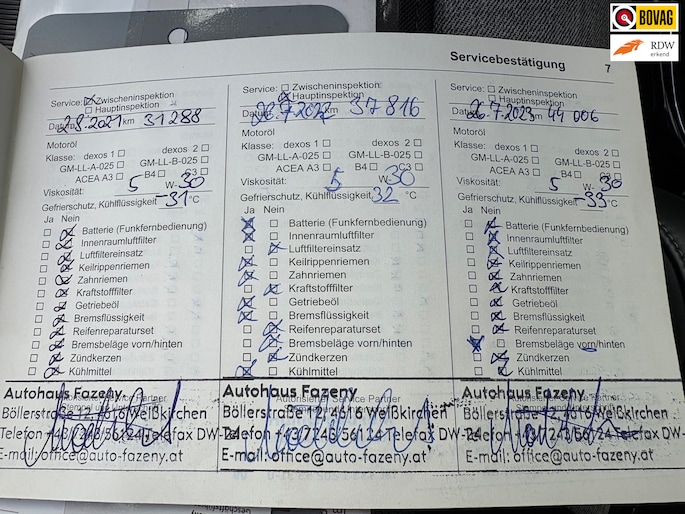 BOVAG
RDW
erkend
Servicebestätigung
7
Service: Zwischeninspektion
Hauptinspektion
Datum 2.8.2021 km 31288
Motoröl
Klasse: dexos 1 dexos 2
GM-LL-A-025 GM-LL-B-025
ACEA A3 B4 C3
Viskosität: 5 W- 30
Gefrierschutz, Kühlflüssigkeit -31 °C
Ja Nein
Batterie (Funkfernbedienung)
Innenraumluftfilter
Luftfiltereinsatz
Keilrippenriemen
Zahnriemen
Kraftstofffilter
Getriebeöl
Bremsflüssigkeit
Reifenreparaturset
Bremsbeläge vorn/hinten
Zündkerzen
Kühlmittel
Autohaus Fazeny
Böllerstraße 12, 4616 Weißkirchen
Telefon
Telefax DW-
E-mail: office@auto-fazeny.at
Service: Zwischeninspektion
Hauptinspektion
26.7.2022 km 37816
Motoröl
Klasse: dexos 1 dexos 2
GM-LL-A-025 GM-LL-B-025
ACEA A3 B4 C3
Viskosität: 5 W- 30
Gefrierschutz, Kühlflüssigkeit 32 °C
Ja Nein
Batterie (Funkfernbedienung)
Innenraumluftfilter
Luftfiltereinsatz
Keilrippenriemen
Zahnriemen
Kraftstofffilter
Getriebeöl
Bremsflüssigkeit
Reifenreparaturset
Bremsbeläge vorn/hinten
Zündkerzen
Kühlmittel
Autohaus Fazeny
Böllerstraße 12, 4616 Weißkirchen
Telefon
Telefax DW-
E-mail: office@auto-fazeny.at
Service: Zwischeninspektion
Hauptinspektion
Datum 26.7.2023 km 44006
Motoröl
Klasse: dexos 1 dexos 2
GM-LL-A-025 GM-LL-B-025
ACEA A3 B4 C3
Viskosität: 5 W- 30
Gefrierschutz, Kühlflüssigkeit -33 °C
Ja Nein
Batterie (Funkfernbedienung)
Innenraumluftfilter
Luftfiltereinsatz
Keilrippenriemen
Zahnriemen
Kraftstofffilter
Getriebeöl
Bremsflüssigkeit
Reifenreparaturset
Bremsbeläge vorn/hinten
Zündkerzen
Kühlmittel
Autohaus Fazeny
Böllerstraße 12, 4616 Weißkirchen
Telefon
Telefax DW-
E-mail: office@auto-fazeny.at